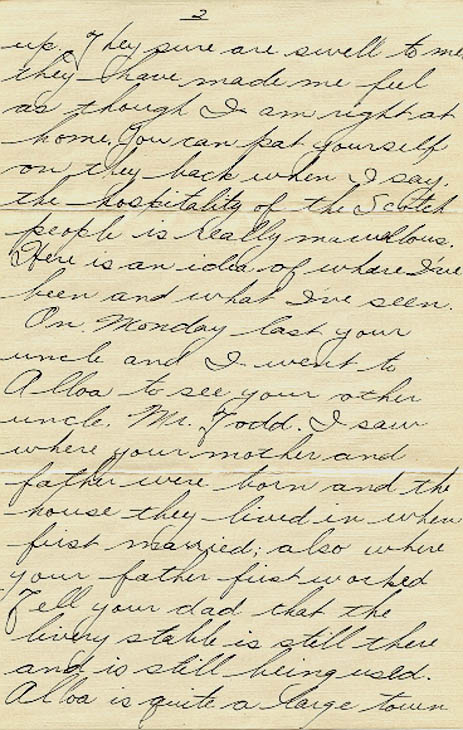 2
up. They sure are swell to me
they have made me feel
as though I am right at
home. You can pat yourself
on they back when I say,
the hospitality of the Scotch
people is really marvellous.
Here is an idea of where I've
been and what I've seen.
On Monday last your
uncle and I went to
Alloa to see your other
uncle. Mr. Todd. I saw
where your mother and
father were born and the
house they lived in when
first married; also where
your father first worked
Tell your dad that the
livery stable is still there
and is still being used.
Alloa is quite a large town